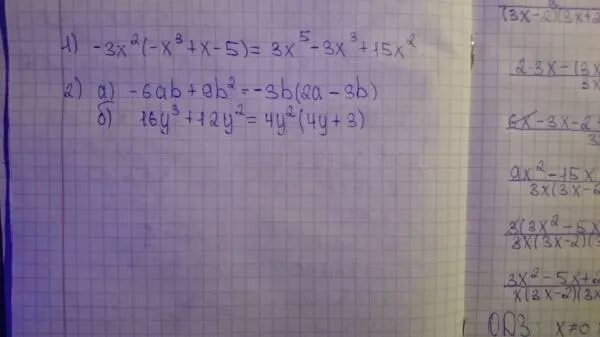 1) -3x²(-x³+x-5)= 3x⁵-3x³+15x²
2) а) -6ab+9b²=-3b(2a-3b)
б) 16y³+12y²=4y²(4y+3)
(3x-2)(3x+2
2·3x-(3x
3x
6x-3x-2+
3
9x²-15x
3x(3x-2
3(3x²-5x
3x(3x-2)(3
3x²-5x+2
x(3x-2)(3x
ОДЗ: x≠0